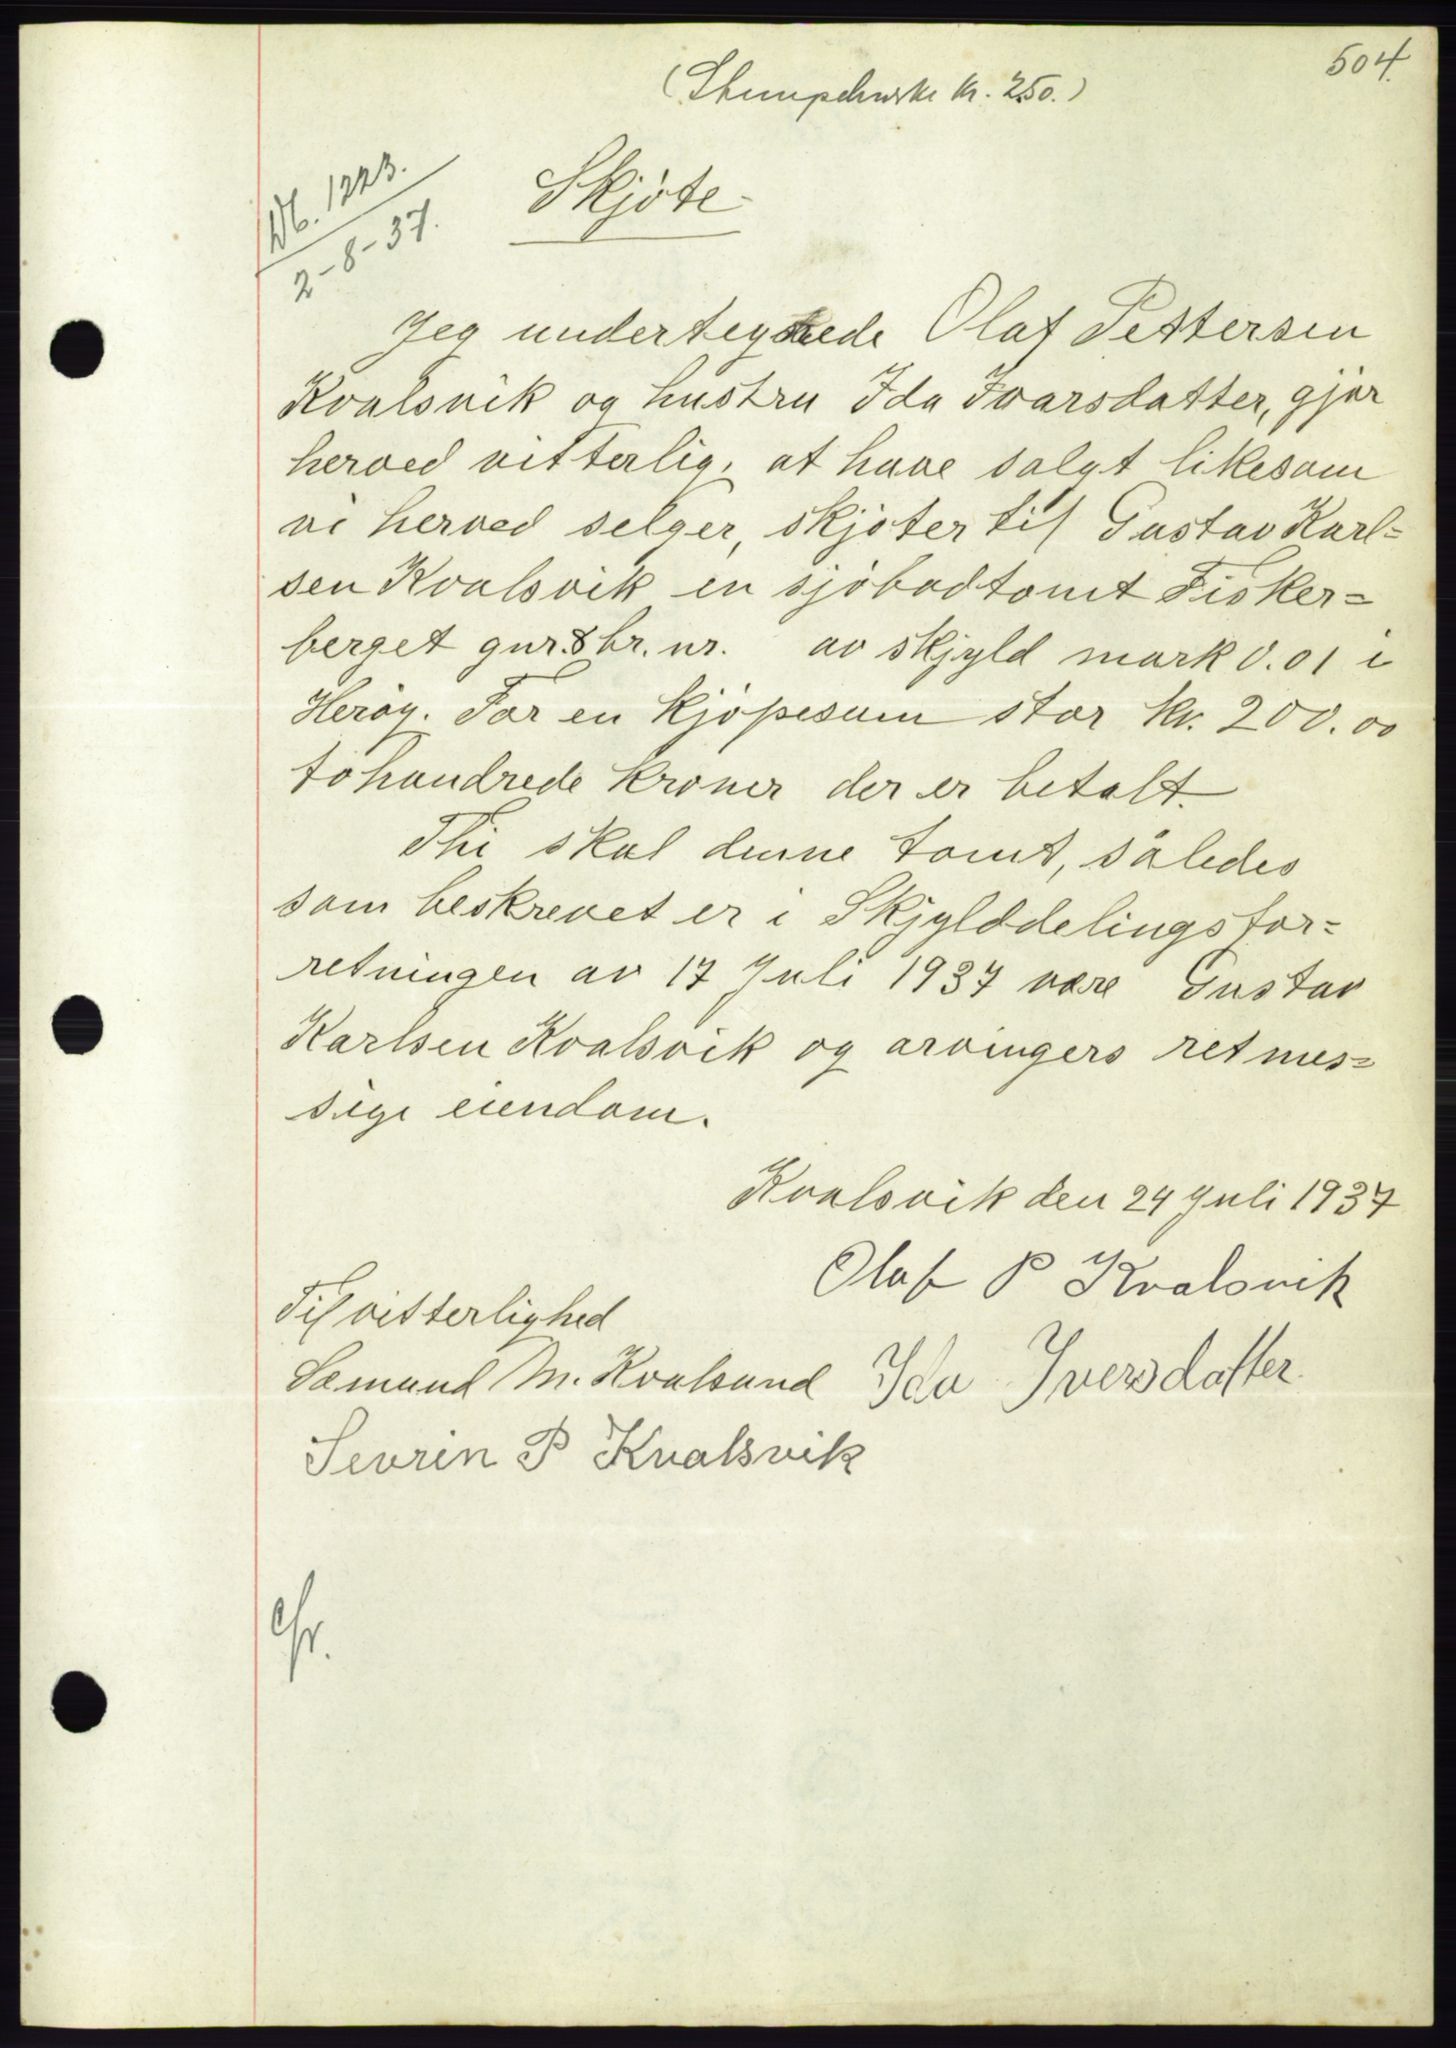 504.
(Stempelmerke kr. 2.50.)
Db. 1223.
2-8-37.
Skjøte
Jeg undertegnede Olaf Pettersen
Kvalsvik og hustru Ida Ivarsdatter, gjør
herved vitterlig, at have solgt likesom
vi herved selger, skjøter til Gustav Karl=
sen Kvalsvik en sjøbodtomt Fisker=
berget gnr. 8 br. nr. av skjyld mark 0.01 i
Herøy. For en kjøpesum stor kr. 200.00
tohundrede kroner der er betalt.
Thi skal denne tomt, således
som beskrevet er i Skjylddelingsfor=
retningen av 17 Juli 1937 være Gustav
Karlsen Kvalsvik og arvingers retmes=
sige eiendom.
Kvalsvik den 24 Juli 1937
Olaf P Kvalsvik
Til vitterlighed
Sæmund M. Kvalsund Ida Iversdatter.
Sevrin P Kvalsvik